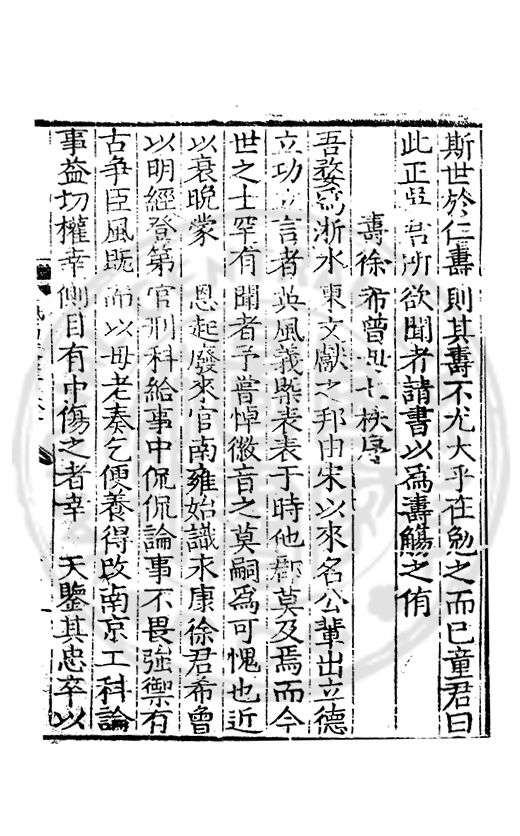 斯世於仁壽則其壽不尤大乎在勉之而已童君曰
此正吾所欲聞者請書以爲壽觴之侑
壽徐希曾母七秩序
吾婺爲浙水東文獻之邦由宋以來名公輩出立德
立功立言者英風義槩表表于時他郡莫及焉而今
世之士罕有聞者予嘗悼徽音之莫嗣爲可愧也近
以衰晩蒙 恩起廢來官南雍始識永康徐君希曾
以明經登第官刑科給事中侃侃論事不畏強禦有
古爭臣風既而以母老奏乞便養得改南京工科論
事益切權幸側目有中傷之者幸 天鑒其忠卒以